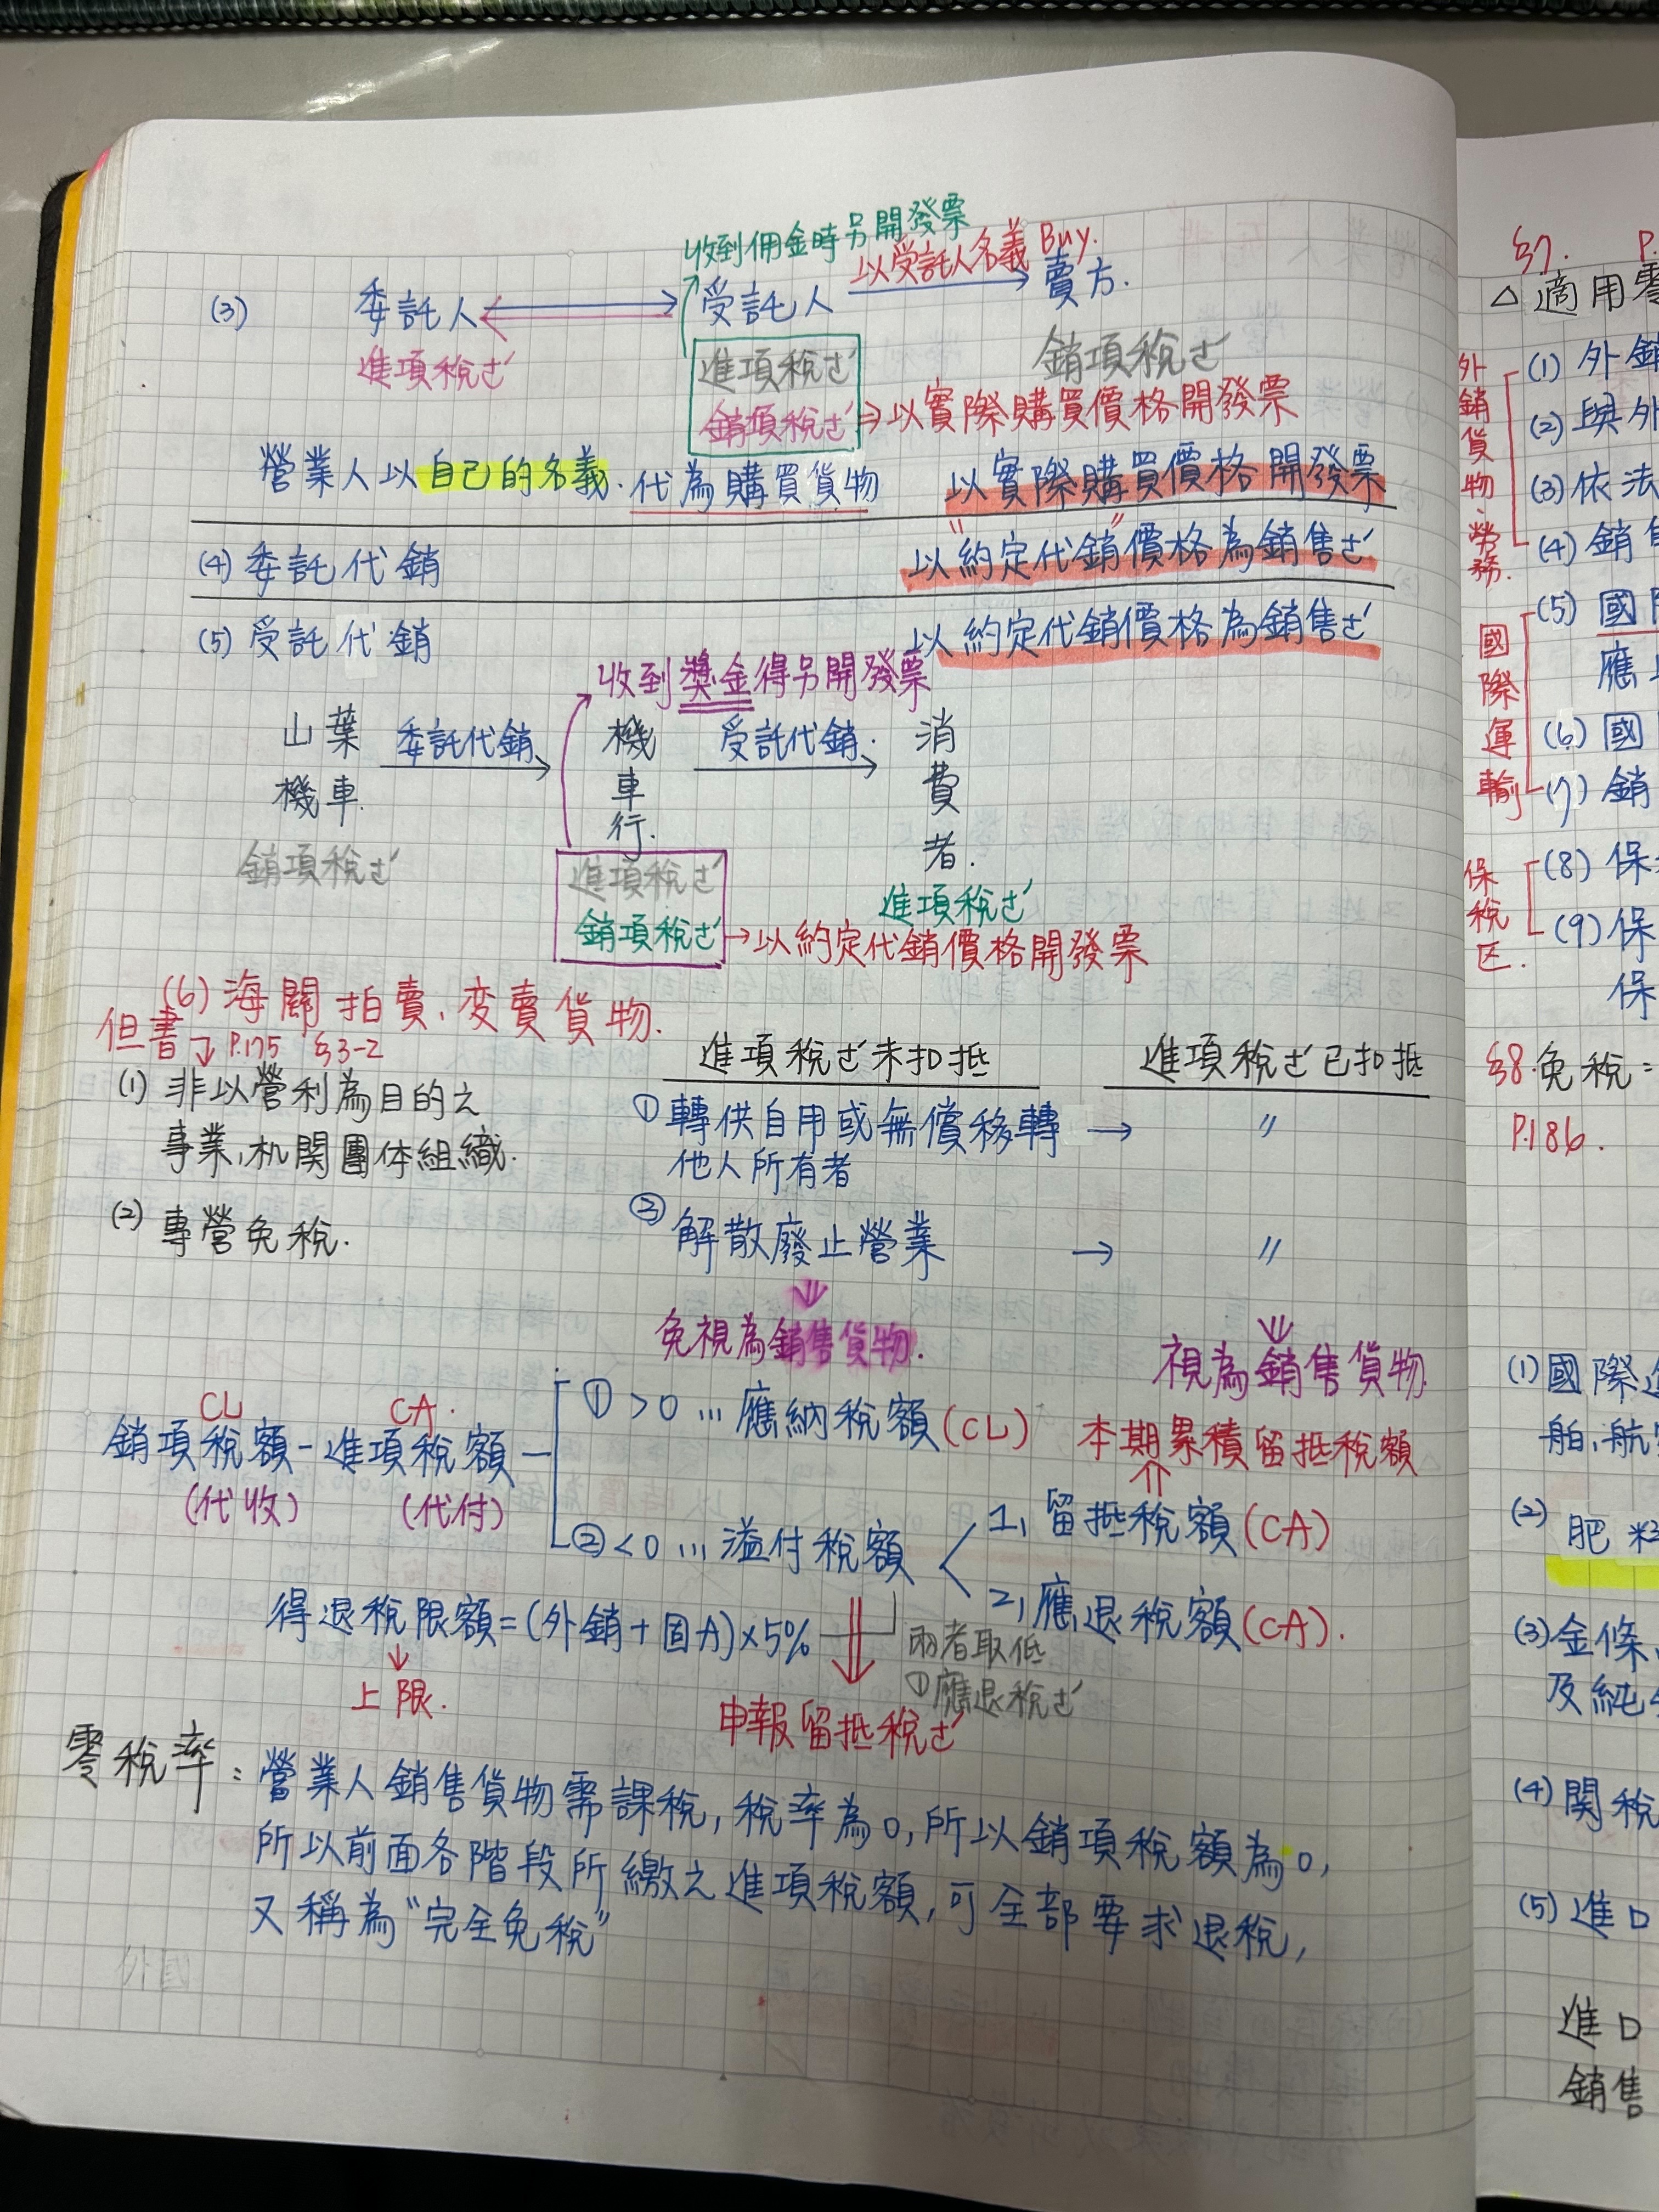 收到佣金時另開發票
以受託人名義Buy.
(3) 委託人 受託人 賣方.
進項稅さ 進項稅さ 銷項稅さ
銷項稅さ ⇒以實際購買價格開發票
營業人以自己的名義.代為購買貨物 以實際購買價格開發票
(4)委託代銷 以"約定代銷"價格為銷售さ
(5)受託代銷 以約定代銷價格為銷售さ
收到獎金得另開發票
山葉機車. 委託代銷 機車行. 受託代銷. 消費者.
銷項稅さ 進項稅さ 進項稅さ
銷項稅さ→以約定代銷價格開發票
(6)海關拍賣、変賣貨物.
但書 P.175 §3-2
(1) 非以營利為目的之
事業,机関團体組織.
(2) 專營免稅.
進項稅さ未扣抵 進項稅さ已扣抵
①轉供自用或無償移轉 → 〃
他人所有者
②解散廢止營業 → 〃
⇓ ⇓
免視為銷售貨物. 視為銷售貨物.
CL CA.
銷項稅額-進項稅額
(代收) (代付)
①>0…應納稅額(CL)
本期累積留抵稅額
⇑
②<0…溢付稅額 1, 留抵稅額(CA)
2, 應退稅額(CA).
得退稅限額=(外銷+固A)×5% 兩者取低
↓ ①應退稅さ
上限. 申報留抵稅さ
零稅率:營業人銷售貨物需課稅,稅率為0,所以銷項稅額為0,
所以前面各階段所繳之進項稅額,可全部要求退稅,
又稱為"完全免稅"
外國
§7. P.
△適用零
外銷貨物、勞務.
(1)外銷
(2)與外
(3)依法
(4)銷售
國際運輸
(5)國際
應
(6)國
(7)銷
保稅区.
(8)保
(9)保
保
§8.免稅=
P.186.
(1)國際
舶、航
(2)肥料
(3)金條、
及純金
(4)関稅
(5)進口
進口
銷售